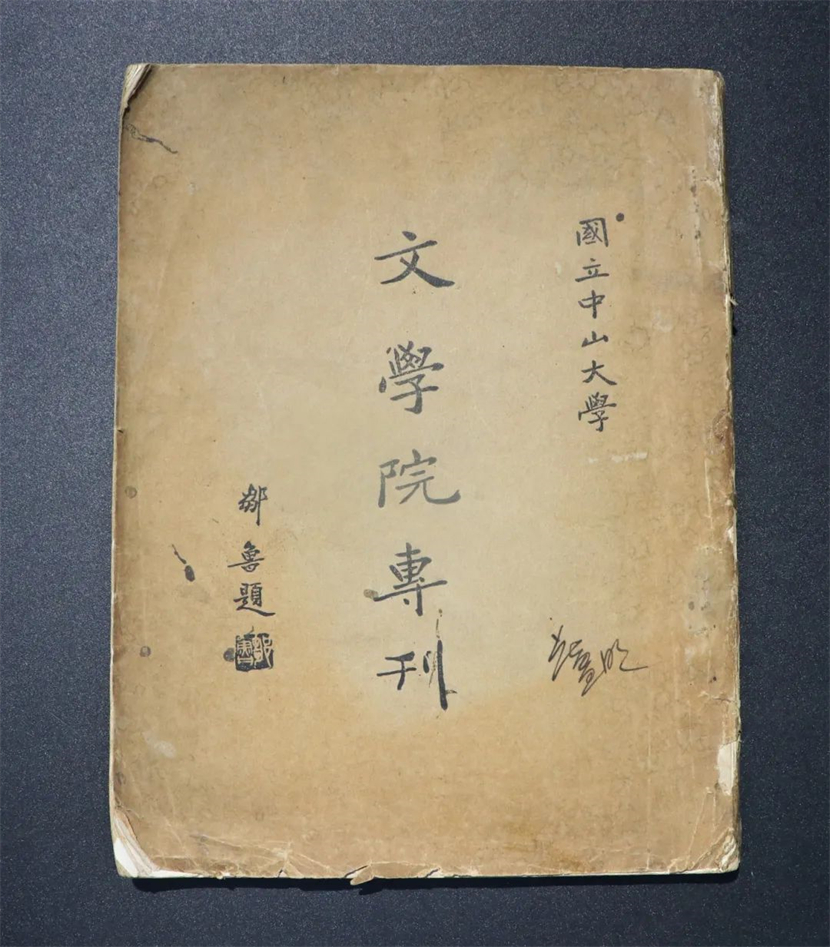 國立中山大學
文學院專刊
鄒魯題